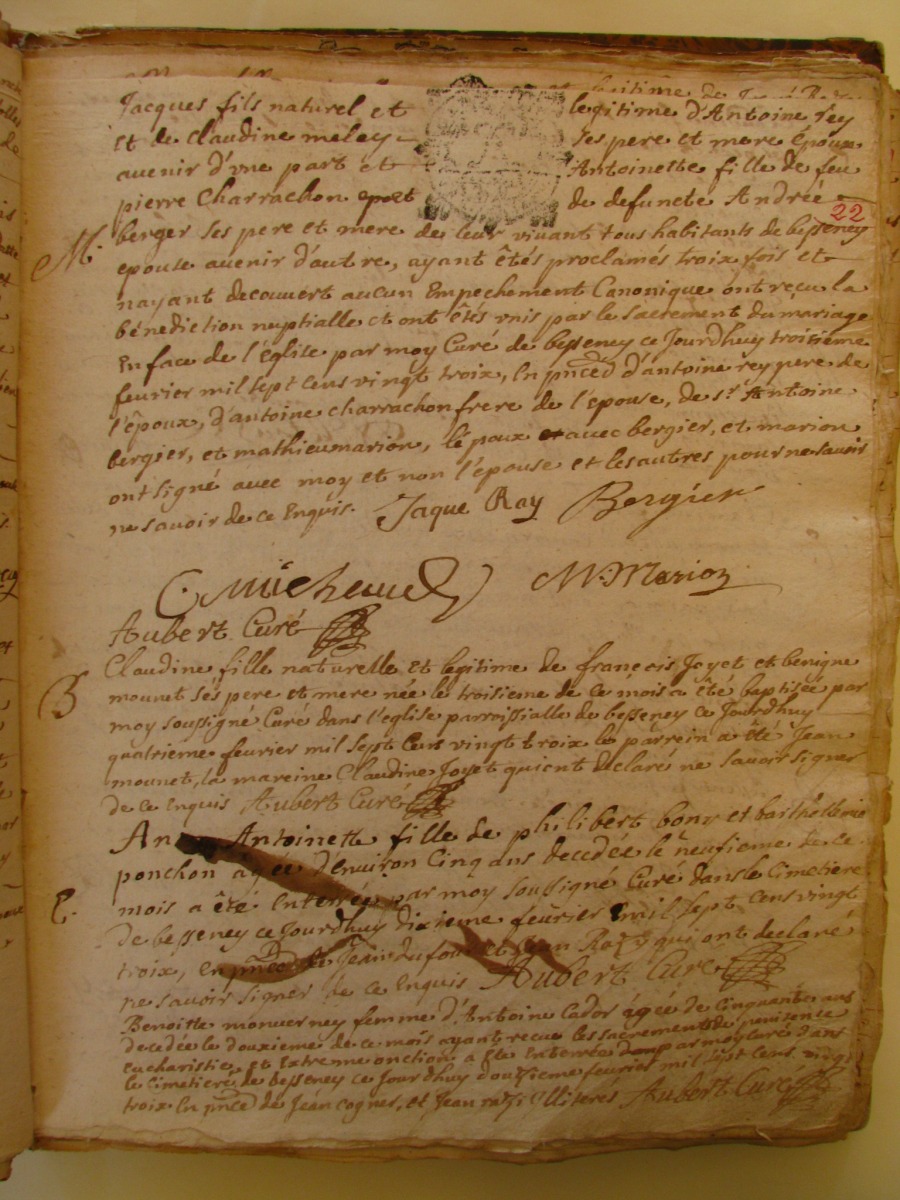 legitime de
Jacques fils naturel et legitime d'Antoine rey
et de Claudine meley ses pere et mere époux
avenir d'vne part et Antoinette fille de feu
pierre Charrachon et de defuncte Andrée
22
berger ses pere et mere de leur vivant tous habitants de besseney
M.
epouse avenir d'autre, ayant êtés proclamés troix fois et
nayant decouvert aucun Empechement Canonique ont reçu la
bénediction nuptialle et ont êtés vnis par le sacrement du mariage
En face de l'Eglise par moy Curé de besseney ce Jourdhuy troisième
fevrier mil sept cens vingt troix, En pnce d'antoine rey pere de
l'époux, d'antoine charrachon frere de l'epouse, de sr Antoine
bergier, et mathieu marion, lépoux avec bergier, et marion
ont signé avec moy et non l'épouse et les autres pour ne savoir
ne savoir de ce Enquis. Jaque Ray Bergier
C Micheaud M. Marion
Aubert Curé
Claudine fille naturelle et legitime de françois Joyet et benigne
B
mounet sés pere et mere née le troisieme de ce mois a êté baptisée par
moy soussigné Curé dans l'eglise parroissialle de besseney ce Jourdhuy
quatrieme fevrier mil sept cens vingt troix le parrein a êté Jean
mounet, la mareine Claudine Joyet qui ont declaré ne savoir signer
de ce Enquis Aubert Curé
Antoinette fille de philibert bony et barthelemie
ponchon agée d'Environ Cinq ans decedée le neufieme de ce
E.
mois a été Enterrée par moy soussigné Curé dans le Cimetiere
de besseney ce Jourdhuy dixieme fevrier mil sept cens vingt
troix, En pnce de Jean dufour et Jean qui ont declaré
ne savoir signer de ce Enquis Aubert Curé
Benoitte monverney femme d'Antoine Cador agée de Cinquante ans
decedée le douxieme de ce mois ayant recue les sacrements de penitence
eucharistie, et Extreme onction a Ete Enterrée par moy Curé dans
le Cimetiere de besseney ce Jourdhuy fevrier mil sept cens vingt
troix En pnce de Jean cognet, et Jean illiteres Aubert Curé